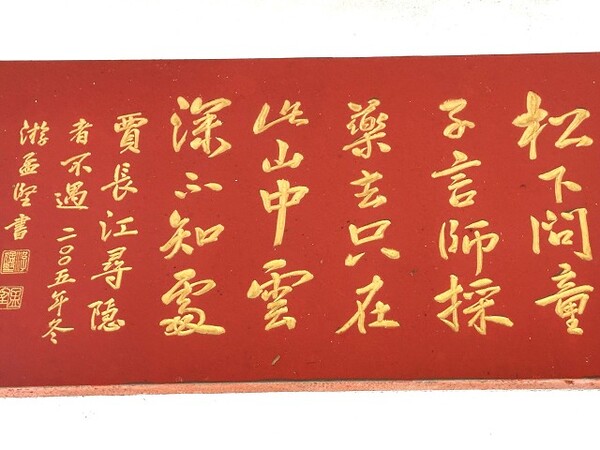 松下問童
子言師採
藥去只在
此山中雲
深不知處
賈長江尋隐
者不遇 二〇〇五年冬
游孟堅書